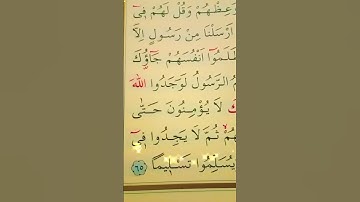 وَعِظْهُمْ وَقُلْ لَهُمْ فٓى
اَرْسَلْنَا مِنْ رَسُولٍ اِلَّا
ظَلَمُٓوا اَنْفُسَهُمْ جَٓاؤُ۫كَ
الرَّسُولُ لَوَجَدُوا اللّٰهَ
لَا يُؤْمِنُونَ حَتّٰى
ثُمَّ لَا يَجِدُوا فٓى
يُسَلِّمُوا تَسْلٖيمًا ٦٥